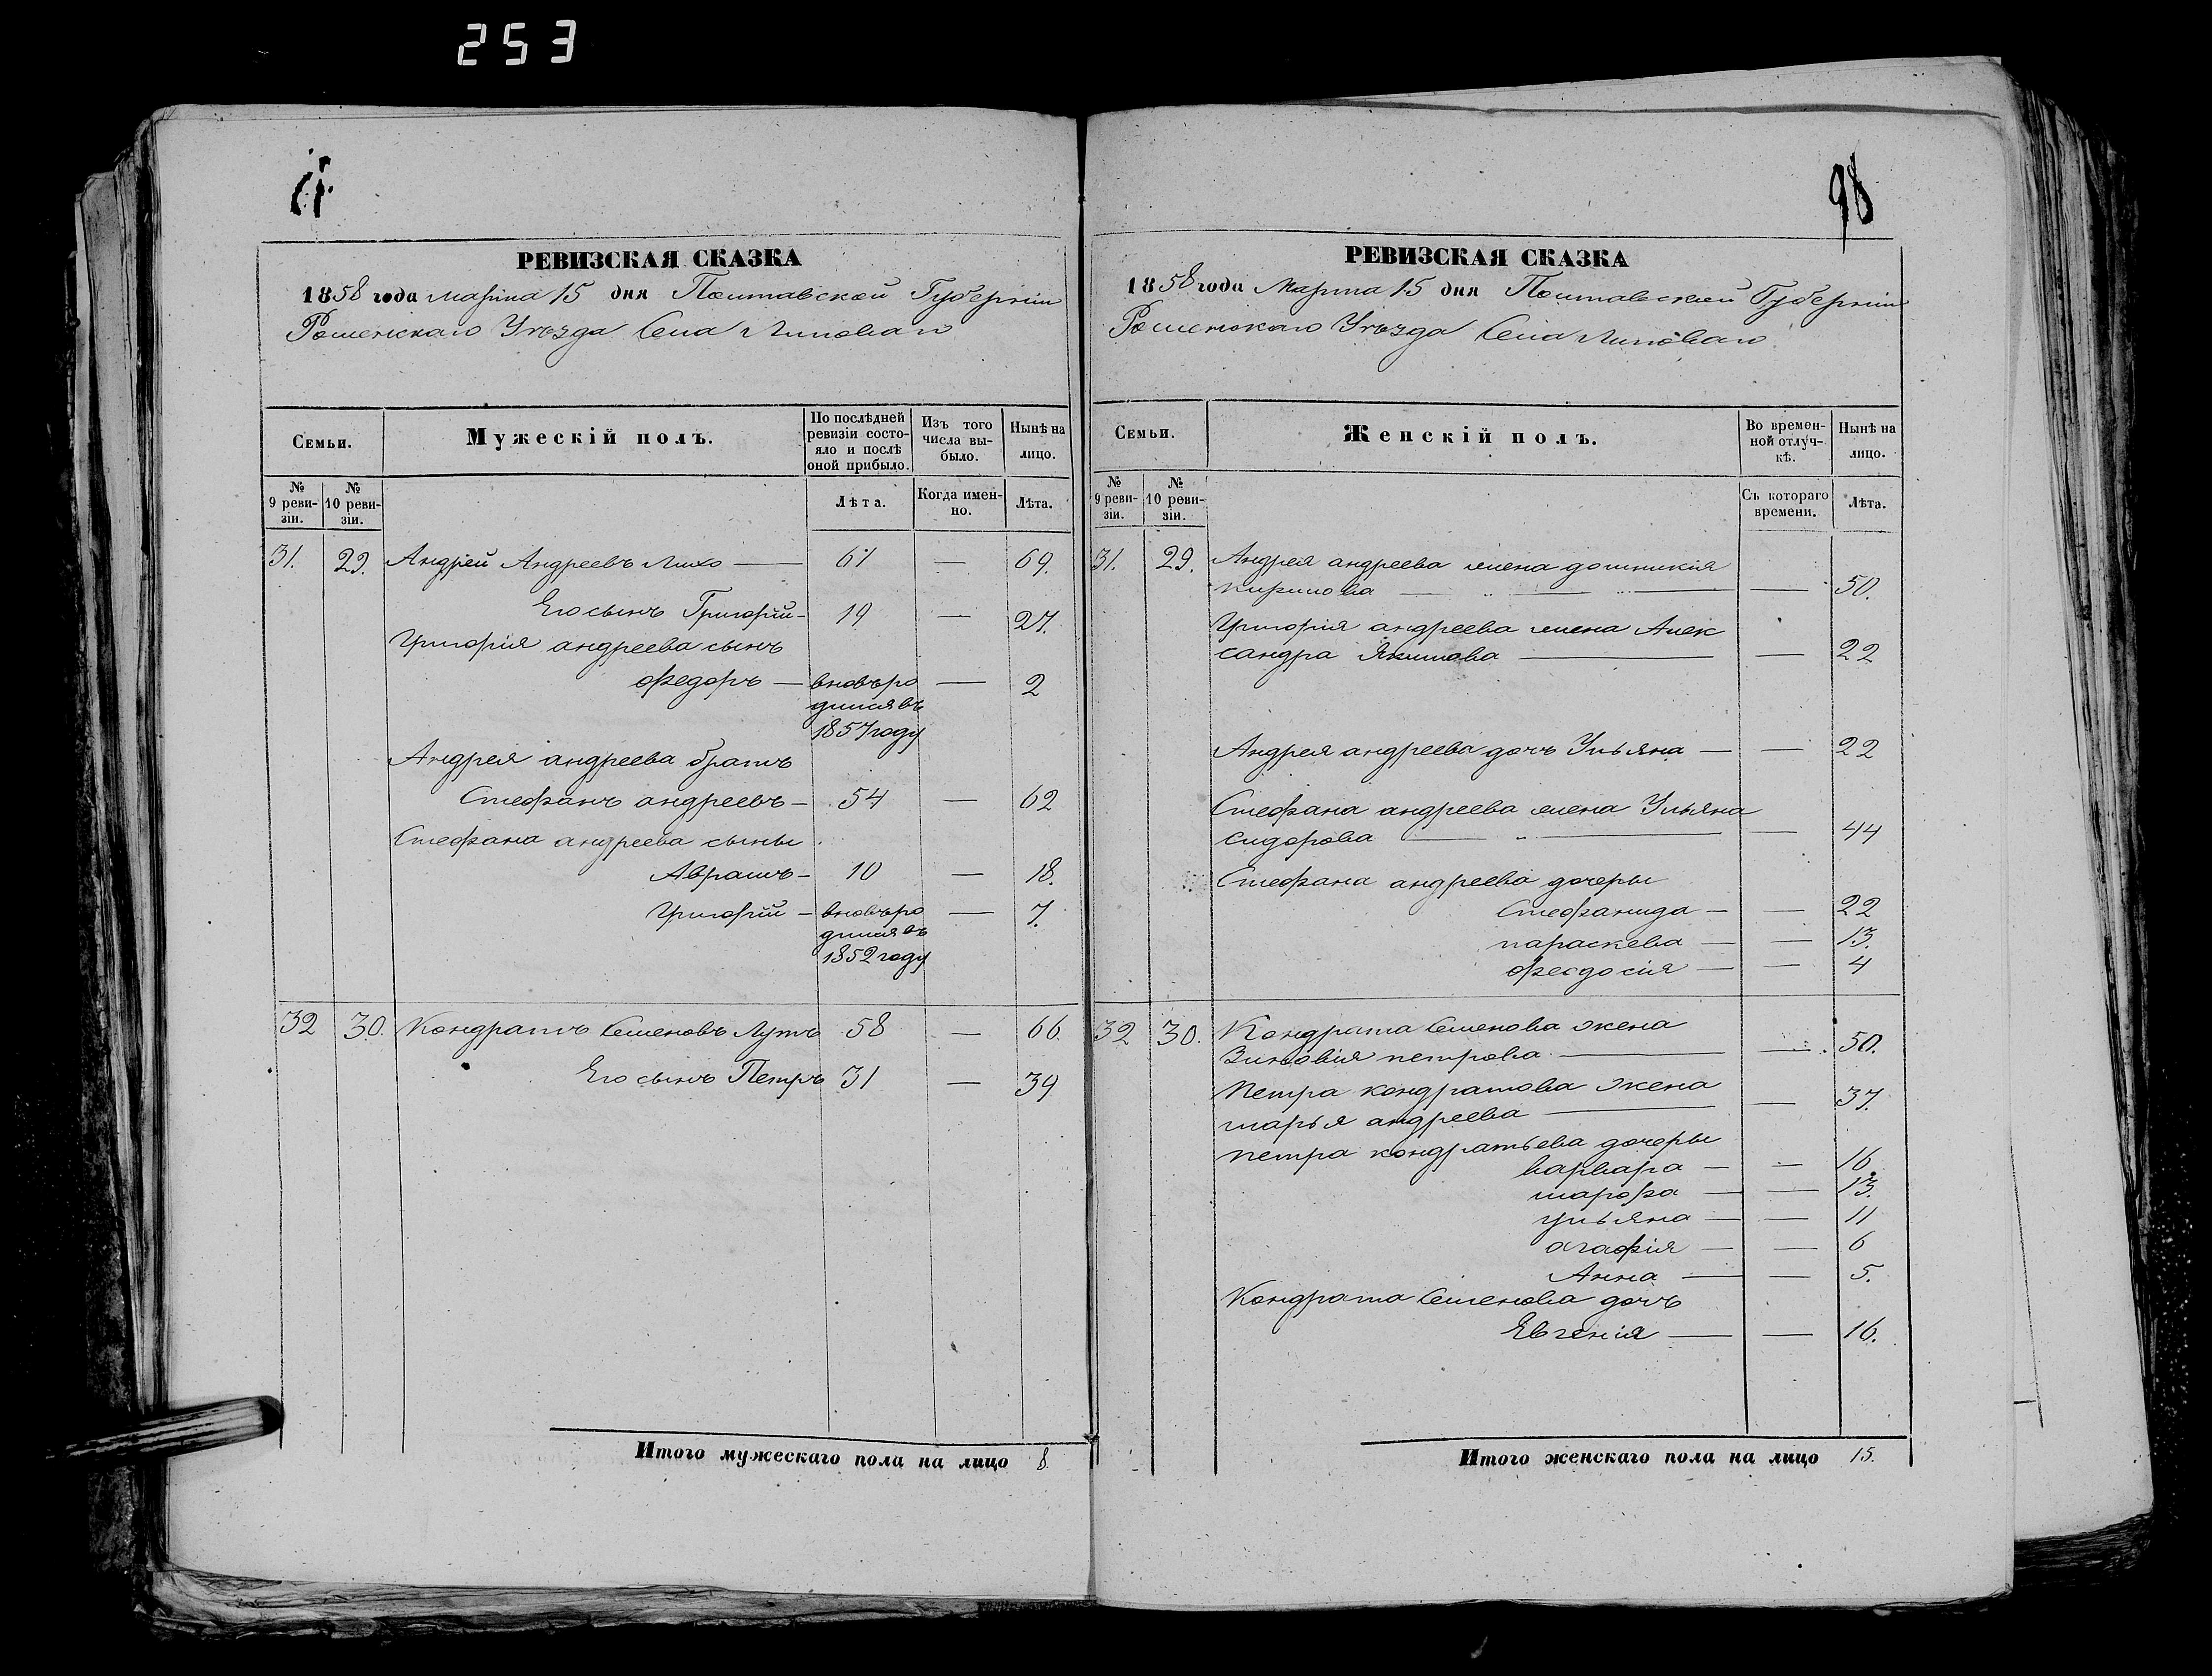 253
98
РЕВИЗСКАЯ СКАЗКА
1858 года марта 15 дня Полтавской Губерніи
Роменскаго Уѣзда Села Липоваго
Семьи.
Мужескій полъ.
По послѣдней ревизіи состояло и послѣ оной прибыло.
Изъ того числа выбыло.
Нынѣ на лицо.
№ 9 ревизіи.
№ 10 ревизіи.
Лѣта.
Когда именно.
Лѣта.
31. 29. Андрей Андреевъ Лихо — 61 — 69.
Его сынъ Григорій — 19 — 27.
Григорія андреева сынъ
Федоръ — вновъро — 2
дился въ
1857 году
Андрея андреева братъ
Стефанъ андреевъ — 54 — 62
Стефана андреева сыны
Аврамъ — 10 — 18.
Григорій — вновъро — 7.
дился въ
1852 году
32 30. Кондратъ Семеновъ Лутъ 58 — 66
Его сынъ Петръ 31 — 39
Итого мужескаго пола на лицо 8.
РЕВИЗСКАЯ СКАЗКА
1858 года Марта 15 дня Полтавской Губерніи
Роменскаго Уѣзда Села Липоваго
Семьи.
Женскій полъ.
Во временной отлучкѣ.
Нынѣ на лицо.
№ 9 ревизіи.
№ 10 ревизіи.
Съ котораго времени.
Лѣта.
31. 29. Андрея андреева жена домникія
кирилова — — 50.
Григорія андреева жена Алек
сандра Якимова — — 22
Андрея андреева дочъ Ульяна — — 22
Стефана андреева жена Ульяна
сидорова — — 44
Стефана андреева дочеры
Стефанида — — 22
параскева — — 13.
феодосія — — 4
32 30. Кондрата Семенова жена
Зиновія петрова — — 50.
Петра кондратова жена
марья андреева — — 37.
петра кондратьева дочеры
варвара — — 16.
марфа — — 13.
ульяна — — 11
агафія — — 6
Анна — — 5.
Кондрата Семенова дочъ
Евгенія — — 16.
Итого женскаго пола на лицо 15.